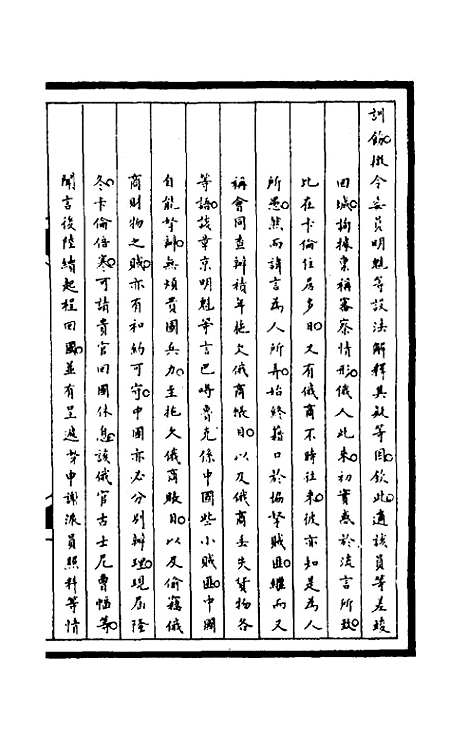 訓飭撤令妥員明魁等設法解釋其敵等因欽此適該員等差竣
回城拘據稟稱審察情形俄人此來初實惑於流言所致
比在卡倫住居多日又有俄商不時往來彼亦知是為人
所愚然而諱言為人所弄始終藉口於協拏賊匪繼而又
稱會同查辦積年拖欠俄商賬目以及俄商丟失貨物各
等語該章京明魁等言巴噚魯克係中國些小賊匪中國
自能拏辦無煩貴國兵力至拖欠俄商賬目以及偷竊俄
商財物之賊亦有和約可守中國亦必分別辦理現屆隆
冬卡倫倍寒可請貴官回國休息該俄官古士尼曹幅等
聞言後陸續起程回國並有呈遞芽申謝派員照料等情